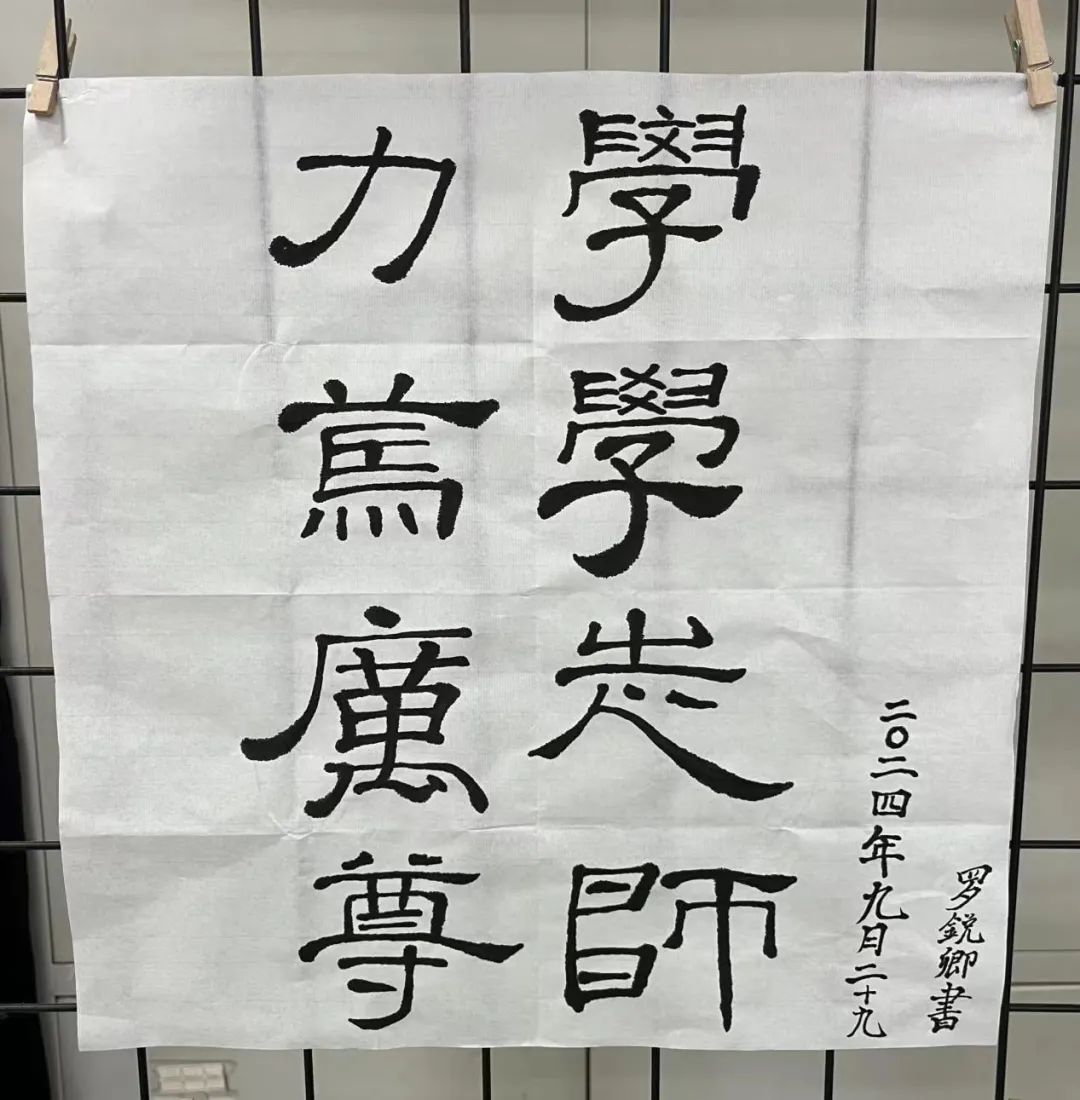 力學
篤學
厲志
尊師
二〇二四年九月二十九
罗銳卿書